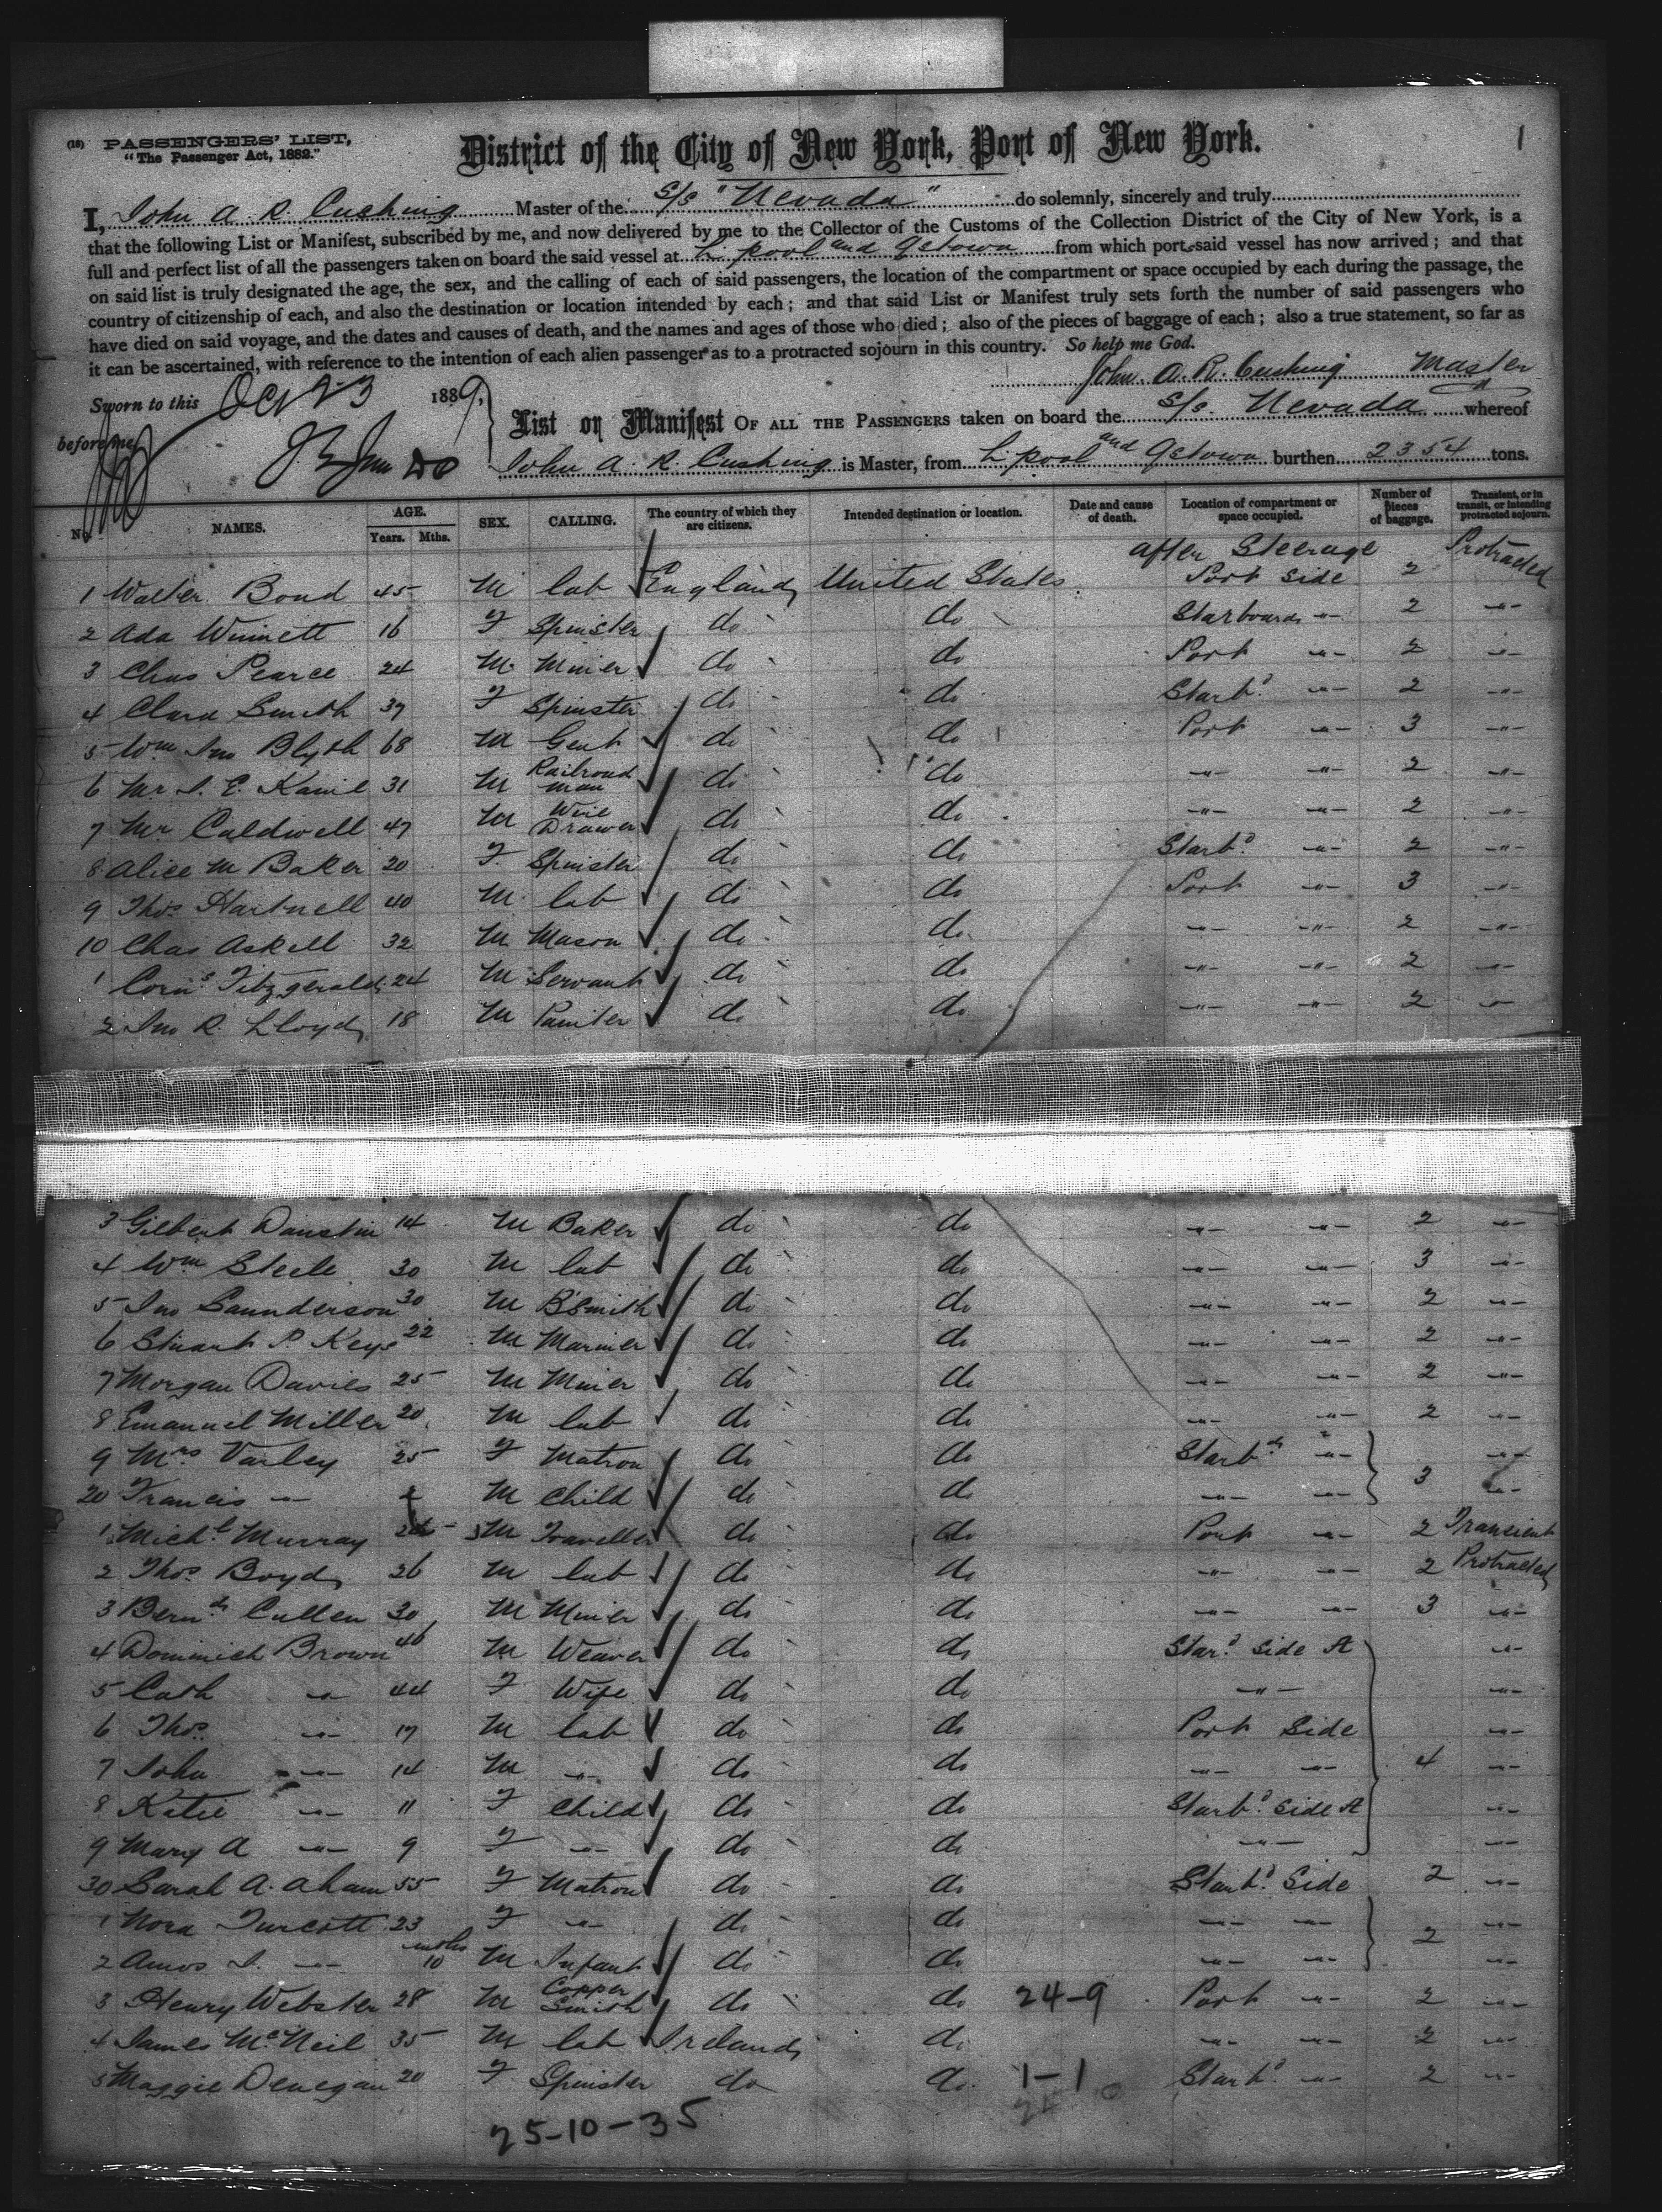 (18) PASSENGERS' LIST,
"The Passenger Act, 1882."
District of the City of New York, Port of New York.
1
I, John A. R. Cushing Master of the S/s "Nevada" do solemnly, sincerely and truly
that the following List or Manifest, subscribed by me, and now delivered by me to the Collector of the Customs of the Collection District of the City of New York, is a
full and perfect list of all the passengers taken on board the said vessel at L'pool and Qetown from which port said vessel has now arrived; and that
on said list is truly designated the age, the sex, and the calling of each of said passengers, the location of the compartment or space occupied by each during the passage, the
country of citizenship of each, and also the destination or location intended by each; and that said List or Manifest truly sets forth the number of said passengers who
have died on said voyage, and the dates and causes of death, and the names and ages of those who died; also of the pieces of baggage of each; also a true statement, so far as
it can be ascertained, with reference to the intention of each alien passenger as to a protracted sojourn in this country. So help me God.
John. A. R. Cushing Master
Sworn to this Oct 23 1889,
before me
List or Manifest OF ALL THE PASSENGERS taken on board the S/s. Nevada whereof
John A. R. Cushing is Master, from L'pool and Qetown burthen 2354 tons.
No. NAMES. AGE. Years. Mths. SEX. CALLING. The country of which they are citizens. Intended destination or location. Date and cause of death. Location of compartment or space occupied. Number of pieces of baggage. Transient, or in transit, or intending protracted sojourn.
after Steerage
1 Walter Bond 45 M lab England United States Port Side 2 Protracted
2 Ada Winnett 16 F Spinster do do Starboard " 2 "
3 Chas Pearce 24 M Miner do do Port " 2 "
4 Clara Smith 39 F Spinster do do Starbd " 2 "
5 Wm Jno Blyth 68 M Gent do do Port " 3 "
6 Mr J. E. 31 M Railroad man do do " " 2 "
7 Mr Caldwell 47 M Wire Drawer do do " " 2 "
8 Alice M Baker 20 F Spinster do do Starbd " 2 "
9 Thos Hartnell 40 M lab do do Port " 3 "
10 Chas Askell 32 M Mason do do " " 2 "
1 Corns Fitzgerald 24 M Servant do do " " 2 "
2 Jno R. Lloyd 18 M Painter do do " " 2 "
3 Gilbert Daustin 14 M Baker do do " " 2 "
4 Wm Steele 30 M lab do do " " 3 "
5 Jno Saunderson 30 M B'Smith do do " " 2 "
6 Stuart P. Keys 22 M Mariner do do " " 2 "
7 Morgan Davies 25 M Miner do do " " 2 "
8 Emanuel Miller 20 M lab do do " " 2 "
9 Mrs Varley 25 F Matron do do Starbd " "
20 Francis " M Child do do " " 3 "
1 Michl Murray M Traveller do do Port " 2 Transient
2 Thos Boyd 26 M lab do do " " 2 Protracted
3 Bernd Cullen 30 M Miner do do " " 3 "
4 Dominick Brown 46 M Weaver do do Stard Side A "
5 Cath " 44 F Wife do do " "
6 Thos " 17 M lab do do Port Side "
7 John " 14 M " do do " " 4 "
8 Katie " 11 F Child do do Starbd Side A "
9 Mary A " 9 F " do do " "
30 Sarah A. Aham 55 F Matron do do Starbd Side 2 "
1 Nora Turcott 23 F " do do " " "
2 Amos J. " mths 10 M Infant do do " " 2 "
3 Henry Webster 28 M Copper Smith do do 24-9 Port " 2 "
4 James McNeil 35 M lab Ireland do " " 2 "
5 Maggie Denegan 20 F Spinster do do 1-1 Starbd " 2 "
25-10-35